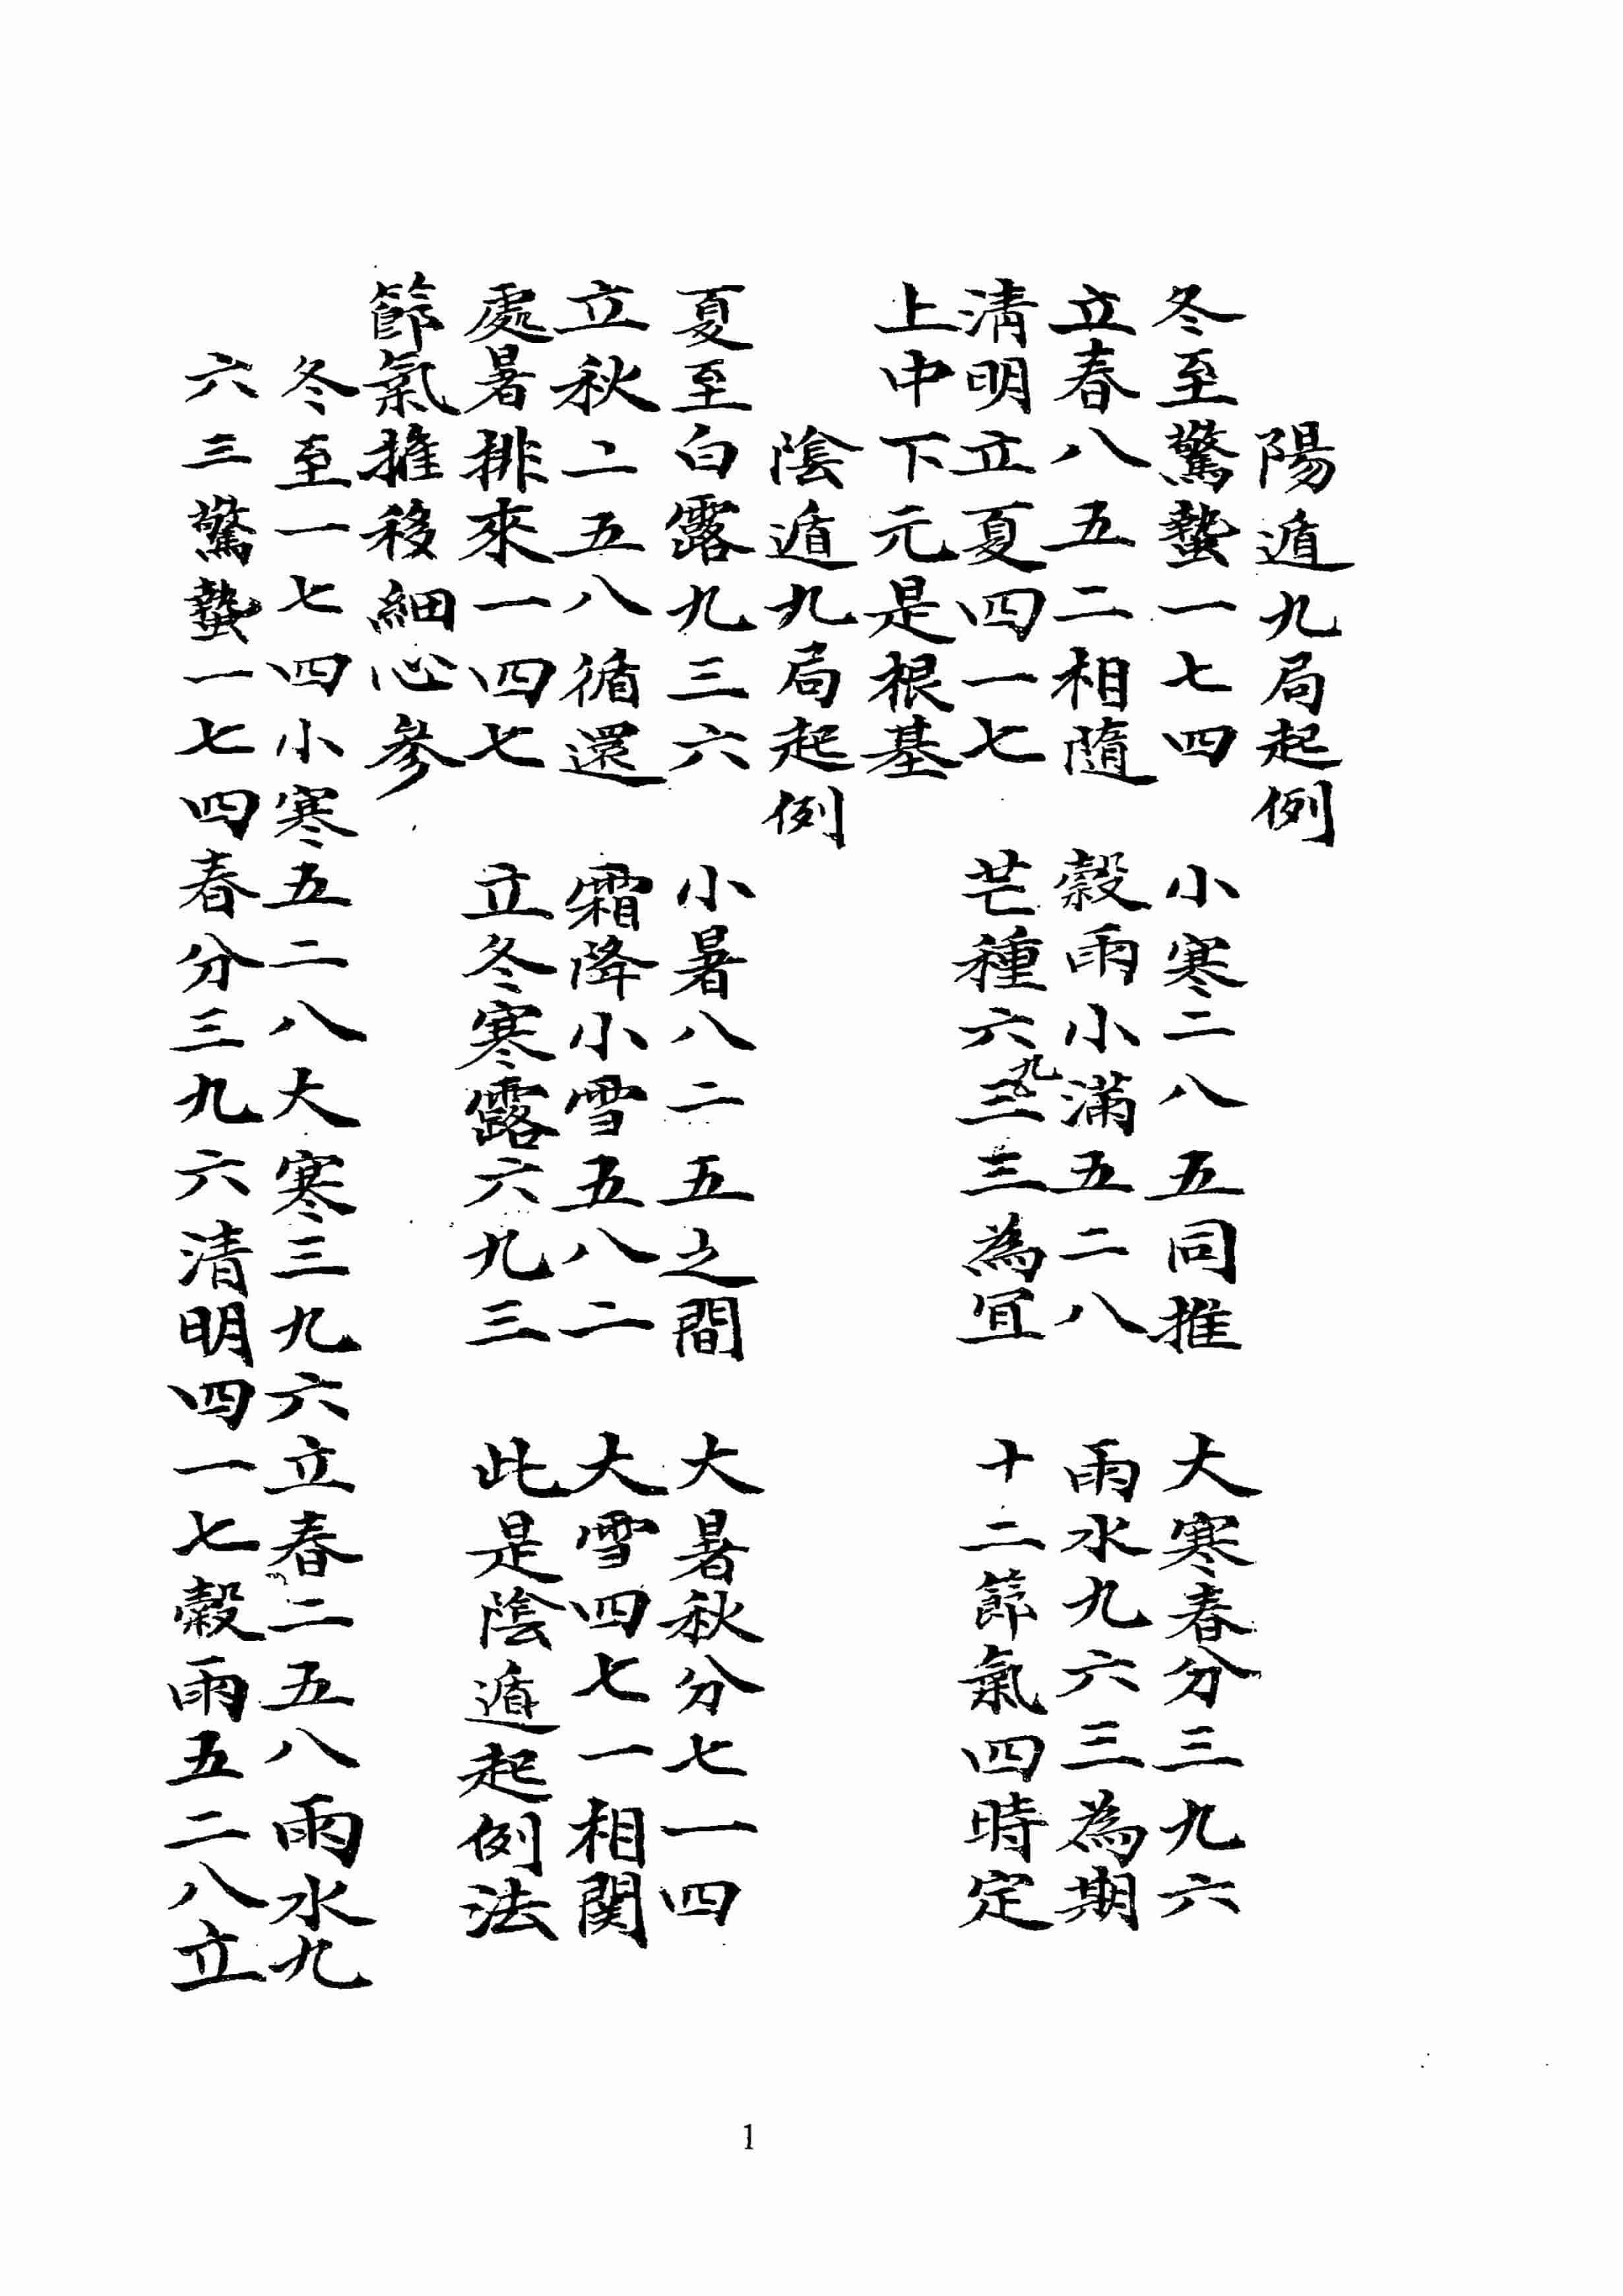 陽遁九局起例
冬至驚蟄一七四　小寒二八五同推　大寒春分三九六
立春八五二相隨　穀雨小滿五二八　雨水九六三為期
清明立夏四一七　芒種六九三三為宜　十二節氣四時定
上中下元是根基
陰遁九局起例
夏至白露九三六　小暑八二五之間　大暑秋分七一四
立秋二五八循還　霜降小雪五八二　大雪四七一相関
處暑排來一四七　立冬寒露六九三　此是陰遁起例法
節氣推移細心參
冬至一七四小寒五二八大寒三九六立春二五八雨水九
六三驚蟄一七四春分三九六清明四一七穀雨五二八立
1